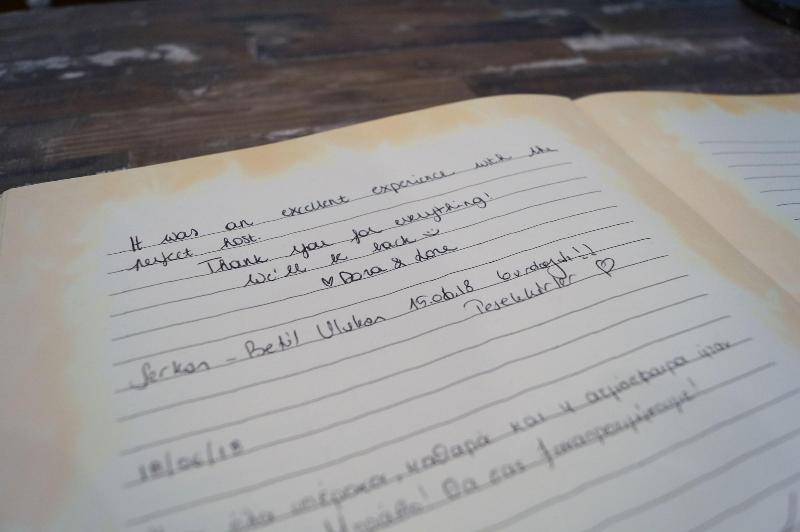 It was an excellent experience with the
perfect host.
Thank you for everything!
We'll be back
♡ Dora &
Serkan - Betil Ulukan 15.06.18
Teşekkürler ♡
18/06/18
όλα υπέροχα, καθαρά και η ατμόσφαιρα ήταν
Μπράβο! Θα σας ξαναπροτιμήσουμε!